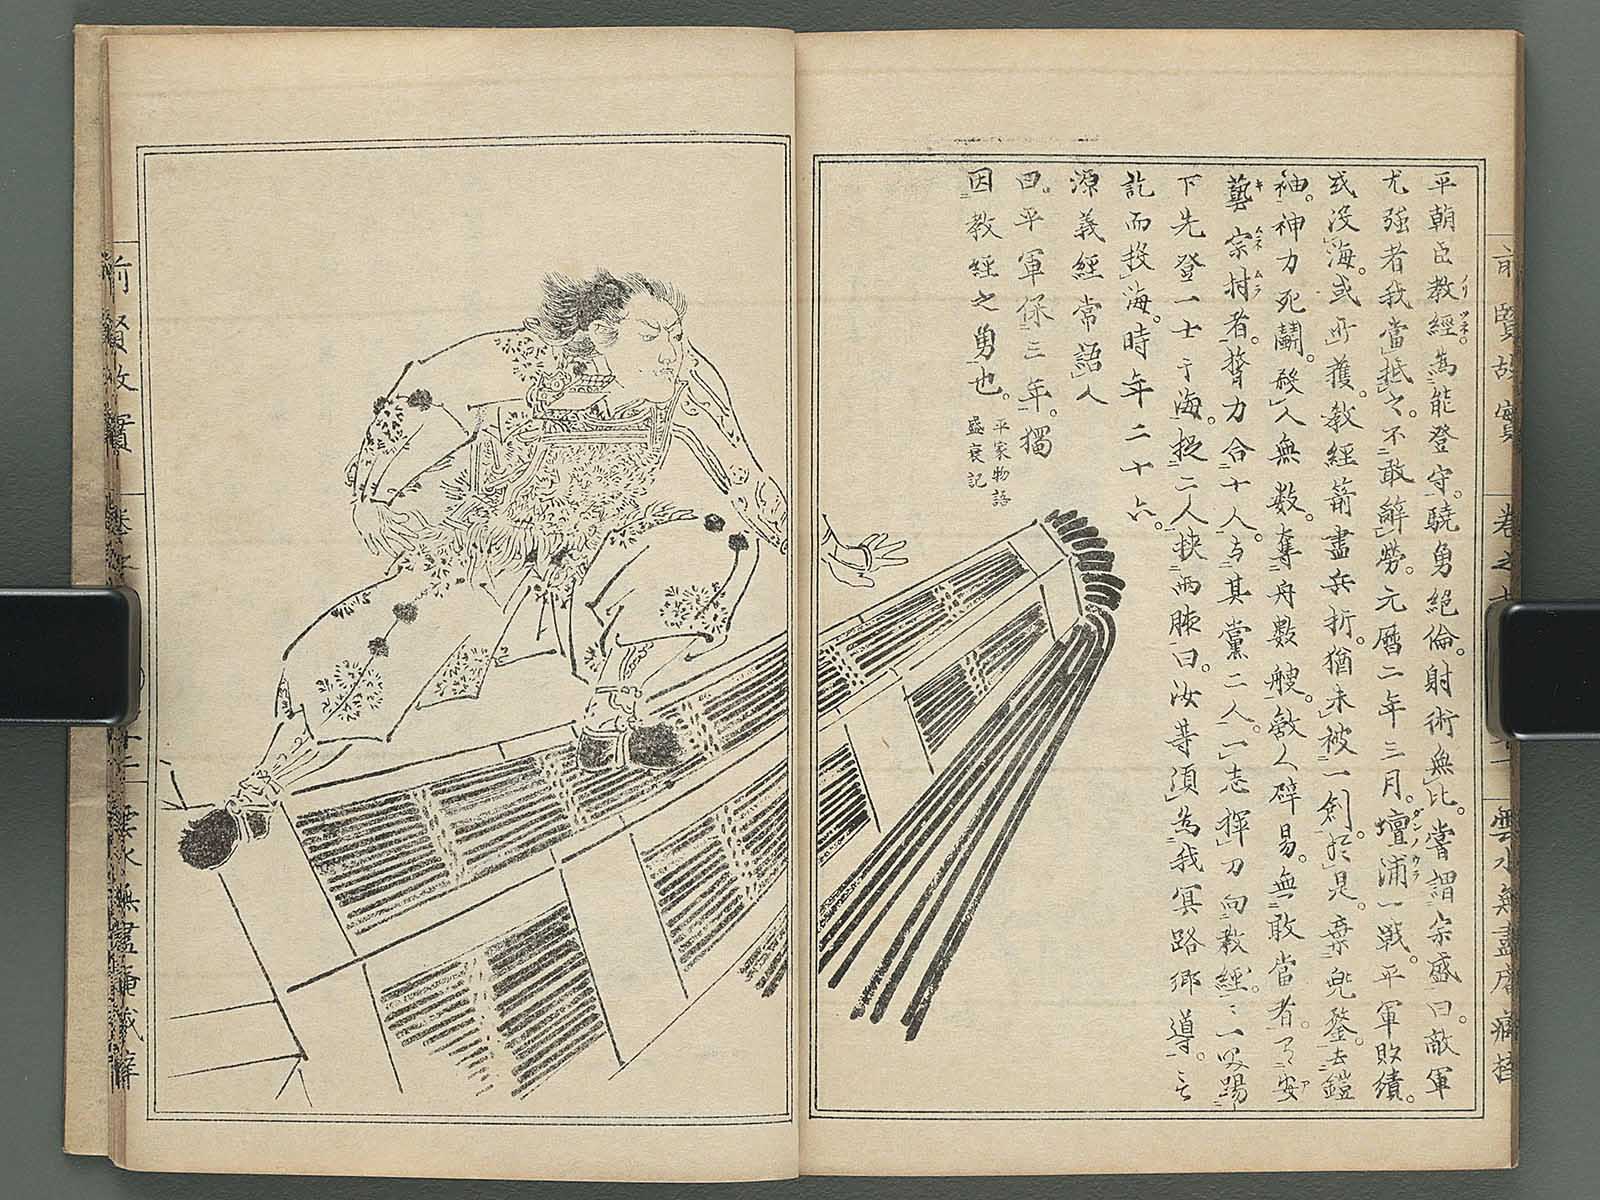 平朝臣教經。為能登守。驍勇絕倫。射術無比。嘗謂宗盛曰。敵軍
尤強者我當抵之。不敢辭勞。元曆二年三月。壇浦一戰。平軍敗績。
或沒海。或所獲。教經箭盡兵折。猶未被一創。於是。棄兜鍪去鎧
袖。神力死鬭。殺人無数。奪舟數艘。敵人辟易。無敢當者。有安
藝宗村者。膂力合十人。与其黨二人。一志揮刀向教經。々一叉踢
下先登一士于海。捉二人挾兩腋曰。汝等須為我冥路鄉導。言
訖而投海。時年二十六。
源義經常語人
曰。平軍保三年。獨
因教經之勇也。平家物語
盛衰記
前賢故實
卷之
雲水無盡庵